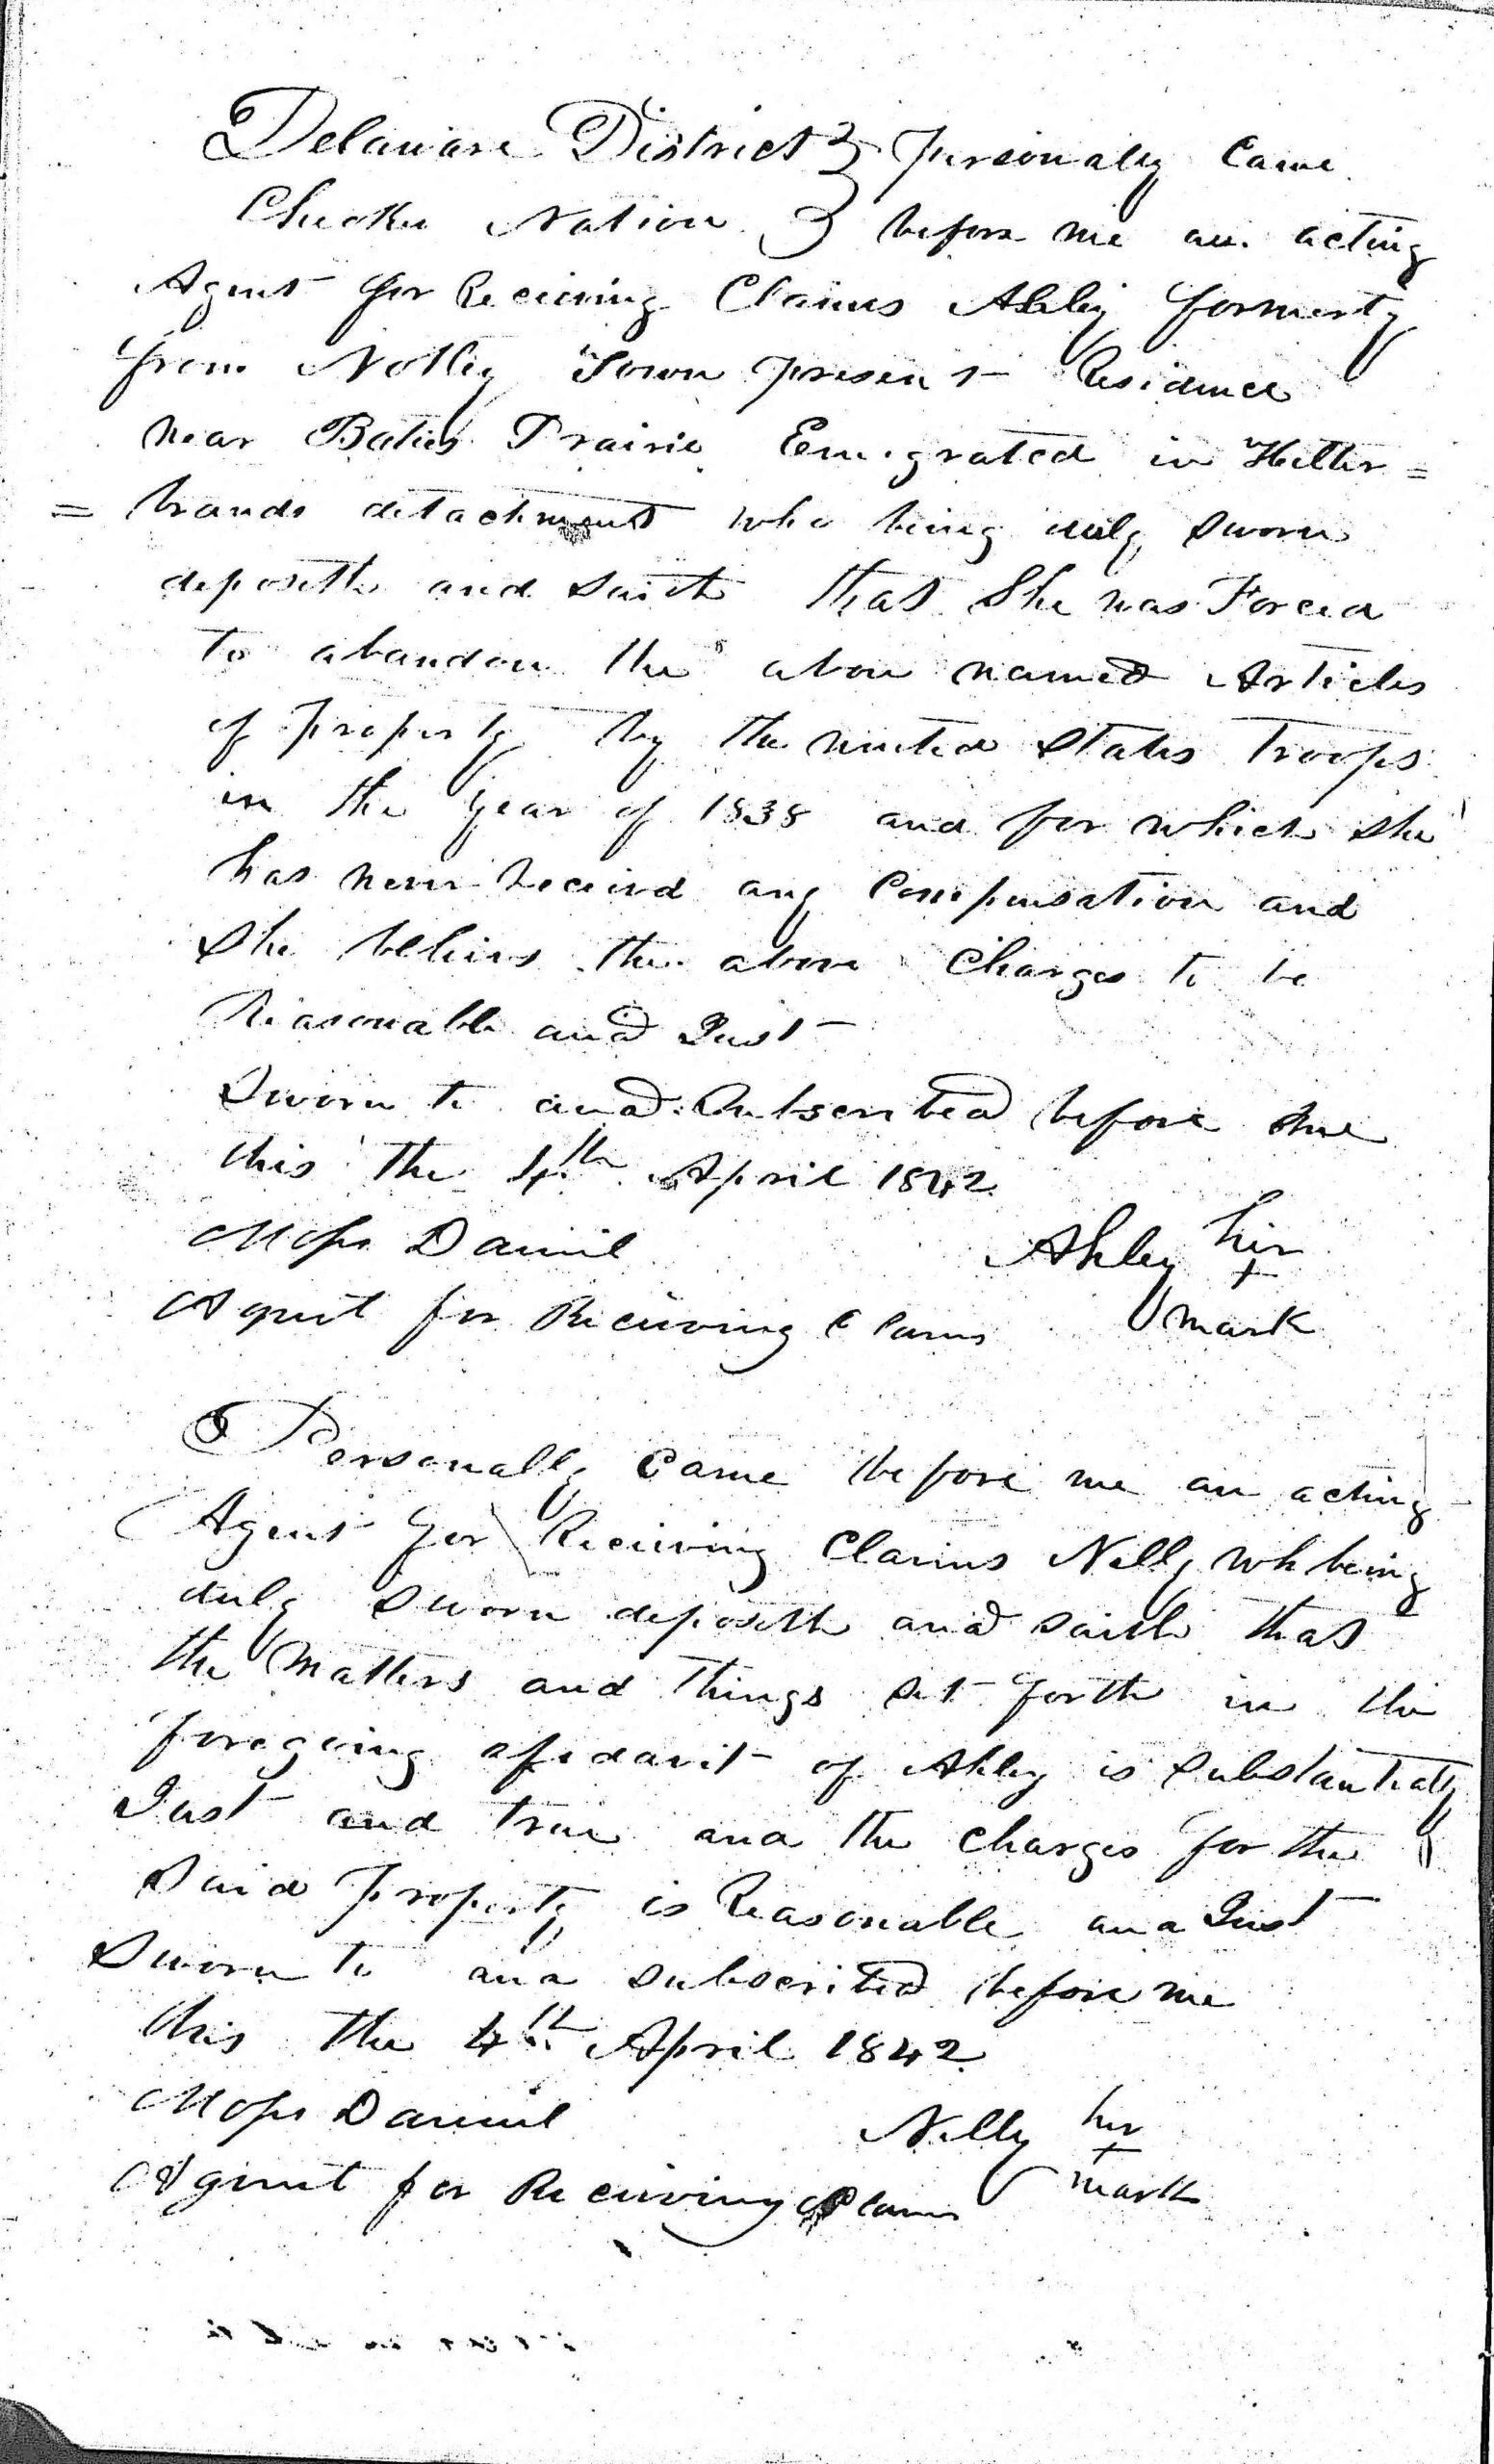 Delaware District } Personaly Came
Cheokee Nation } before me an acting
Agent for Receiving Claims Ahley formerly
from Notley Town present Residence
near Baties Prairie Emigrated in Hilter =
= brands detachment who being duly sworn
deposeth and saith that She was Forced
to abandon the above named Articles
of property by the united States Troops
in the year of 1838 and for which she
has never received any Compensation and
She believes the above Charges to be
Reasonable and Just
Sworn to and Subscribed before me
this the 4th April 1842
Moses Daniel Ahley her
+
Agent for Receiving Claims mark
Personally came before me an acting
Agent for Receiving Claims Nelly wh being
duly sworn deposeth and saith that
the matters and things set forth in the
foregoing afidavit of Ahley is substantially
Just and true and the charges for the
Said property is Reasonable and Just
Sworn to and subscribed before me
this the 4th April 1842
Moses Daniel Nelly her
+
Agent for Receiving Claims mark